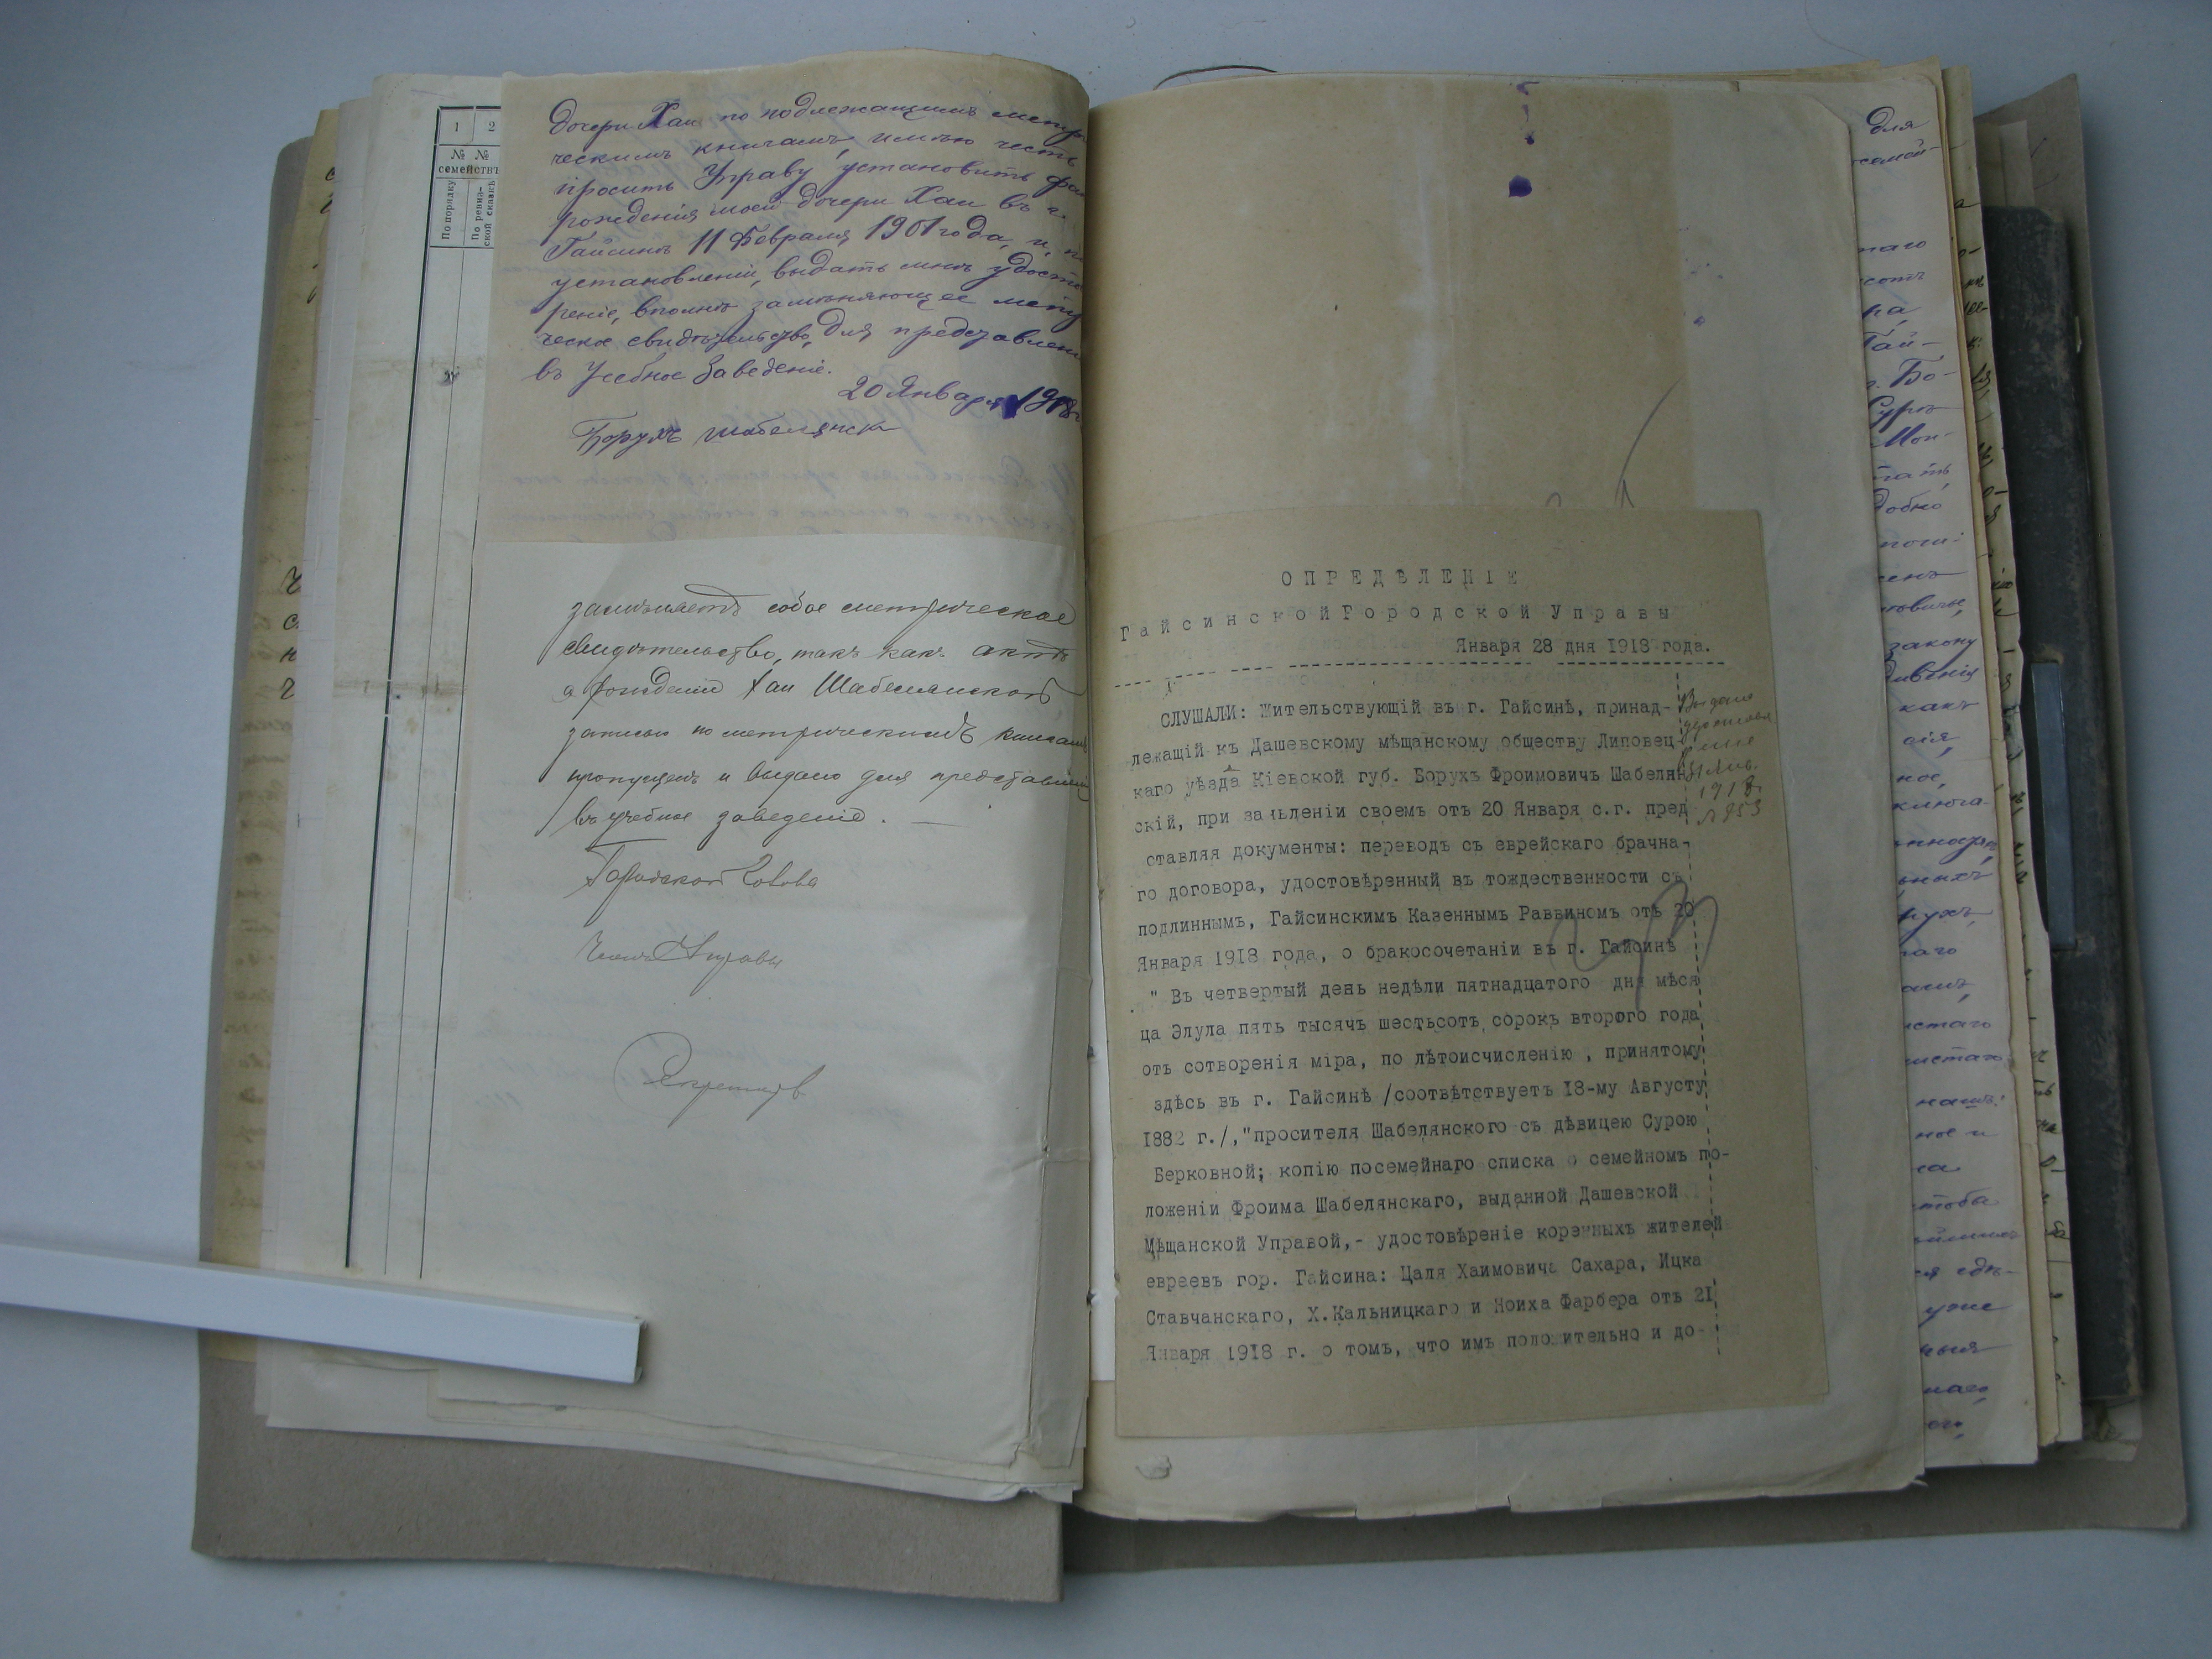 1 2
№ №
семействъ
По порядку
По ревиз-
ской сказкѣ
дочери Хаи по подлежащимъ метри
ческимъ книгамъ, имѣю честь
просить Управу установить фак
рожденія моей дочери Хаи въ г.
Гайсинѣ 11 Февраля 1901 года, и, п
установленіи, выдать мнѣ удосто
реніе, вполнѣ замѣняющее метри
ческое свидѣтельство, для представлен
въ Учебное Заведеніе.
20 Января 1918 г
Борухъ Шабелянск
замѣняетъ собое метрическое
свидѣтельство, такъ какъ актъ
о рожденіи Хаи Шабелянской
записью по метрическимъ книгамъ
пропущенъ и выдано для представленія
въ учебное заведеніе.
Городской Голова
Членъ Управы
Секретарь
ОПРЕДѢЛЕНІЕ
Гайсинской Городской Управы
Января 28 дня 1918 года.
СЛУШАЛИ: Жительствующій въ г. Гайсинѣ, принад-
лежащій къ Дашевскому мѣщанскому обществу Липовец-
каго уѣзда Кіевской губ. Борухъ Фроимовичъ Шабелян
скій, при заявленіи своемъ отъ 20 Января с.г. пред
ставляя документы: переводъ съ еврейскаго брачна-
го договора, удостовѣренный въ тождественности съ
подлиннымъ, Гайсинскимъ Казеннымъ Раввиномъ отъ 20
Января 1918 года, о бракосочетаніи въ г. Гайсинѣ
" Въ четвертый день недѣли пятнадцатого дня мѣся
ца Элула пять тысячъ шестьсотъ сорокъ второго года
отъ сотворенія міра, по лѣтоисчисленію , принятому
здѣсь въ г. Гайсинѣ /соотвѣтствуетъ 18-му Августу
1882 г./,"просителя Шабелянского съ дѣвицею Сурою
Берковной; копію посемейнаго списка о семейномъ по-
ложеніи Фроима Шабелянскаго, выданной Дашевской
Мѣщанской Управой,- удостовѣреніе коренныхъ жителей
евреевъ гор. Гайсина: Цаля Хаимовича Сахара, Ицка
Ставчанскаго, Х.Кальницкаго и Ноиха Фарбера отъ 21
Января 1918 г. о томъ, что имъ положительно и до-
Выдано
31 Янв.
1918 г
№ 953
для
семей-
наго
Гай-
г. Бо-
Суръ
добно
закону
какъ
ное,
наго
нашъ
чтобы
уже